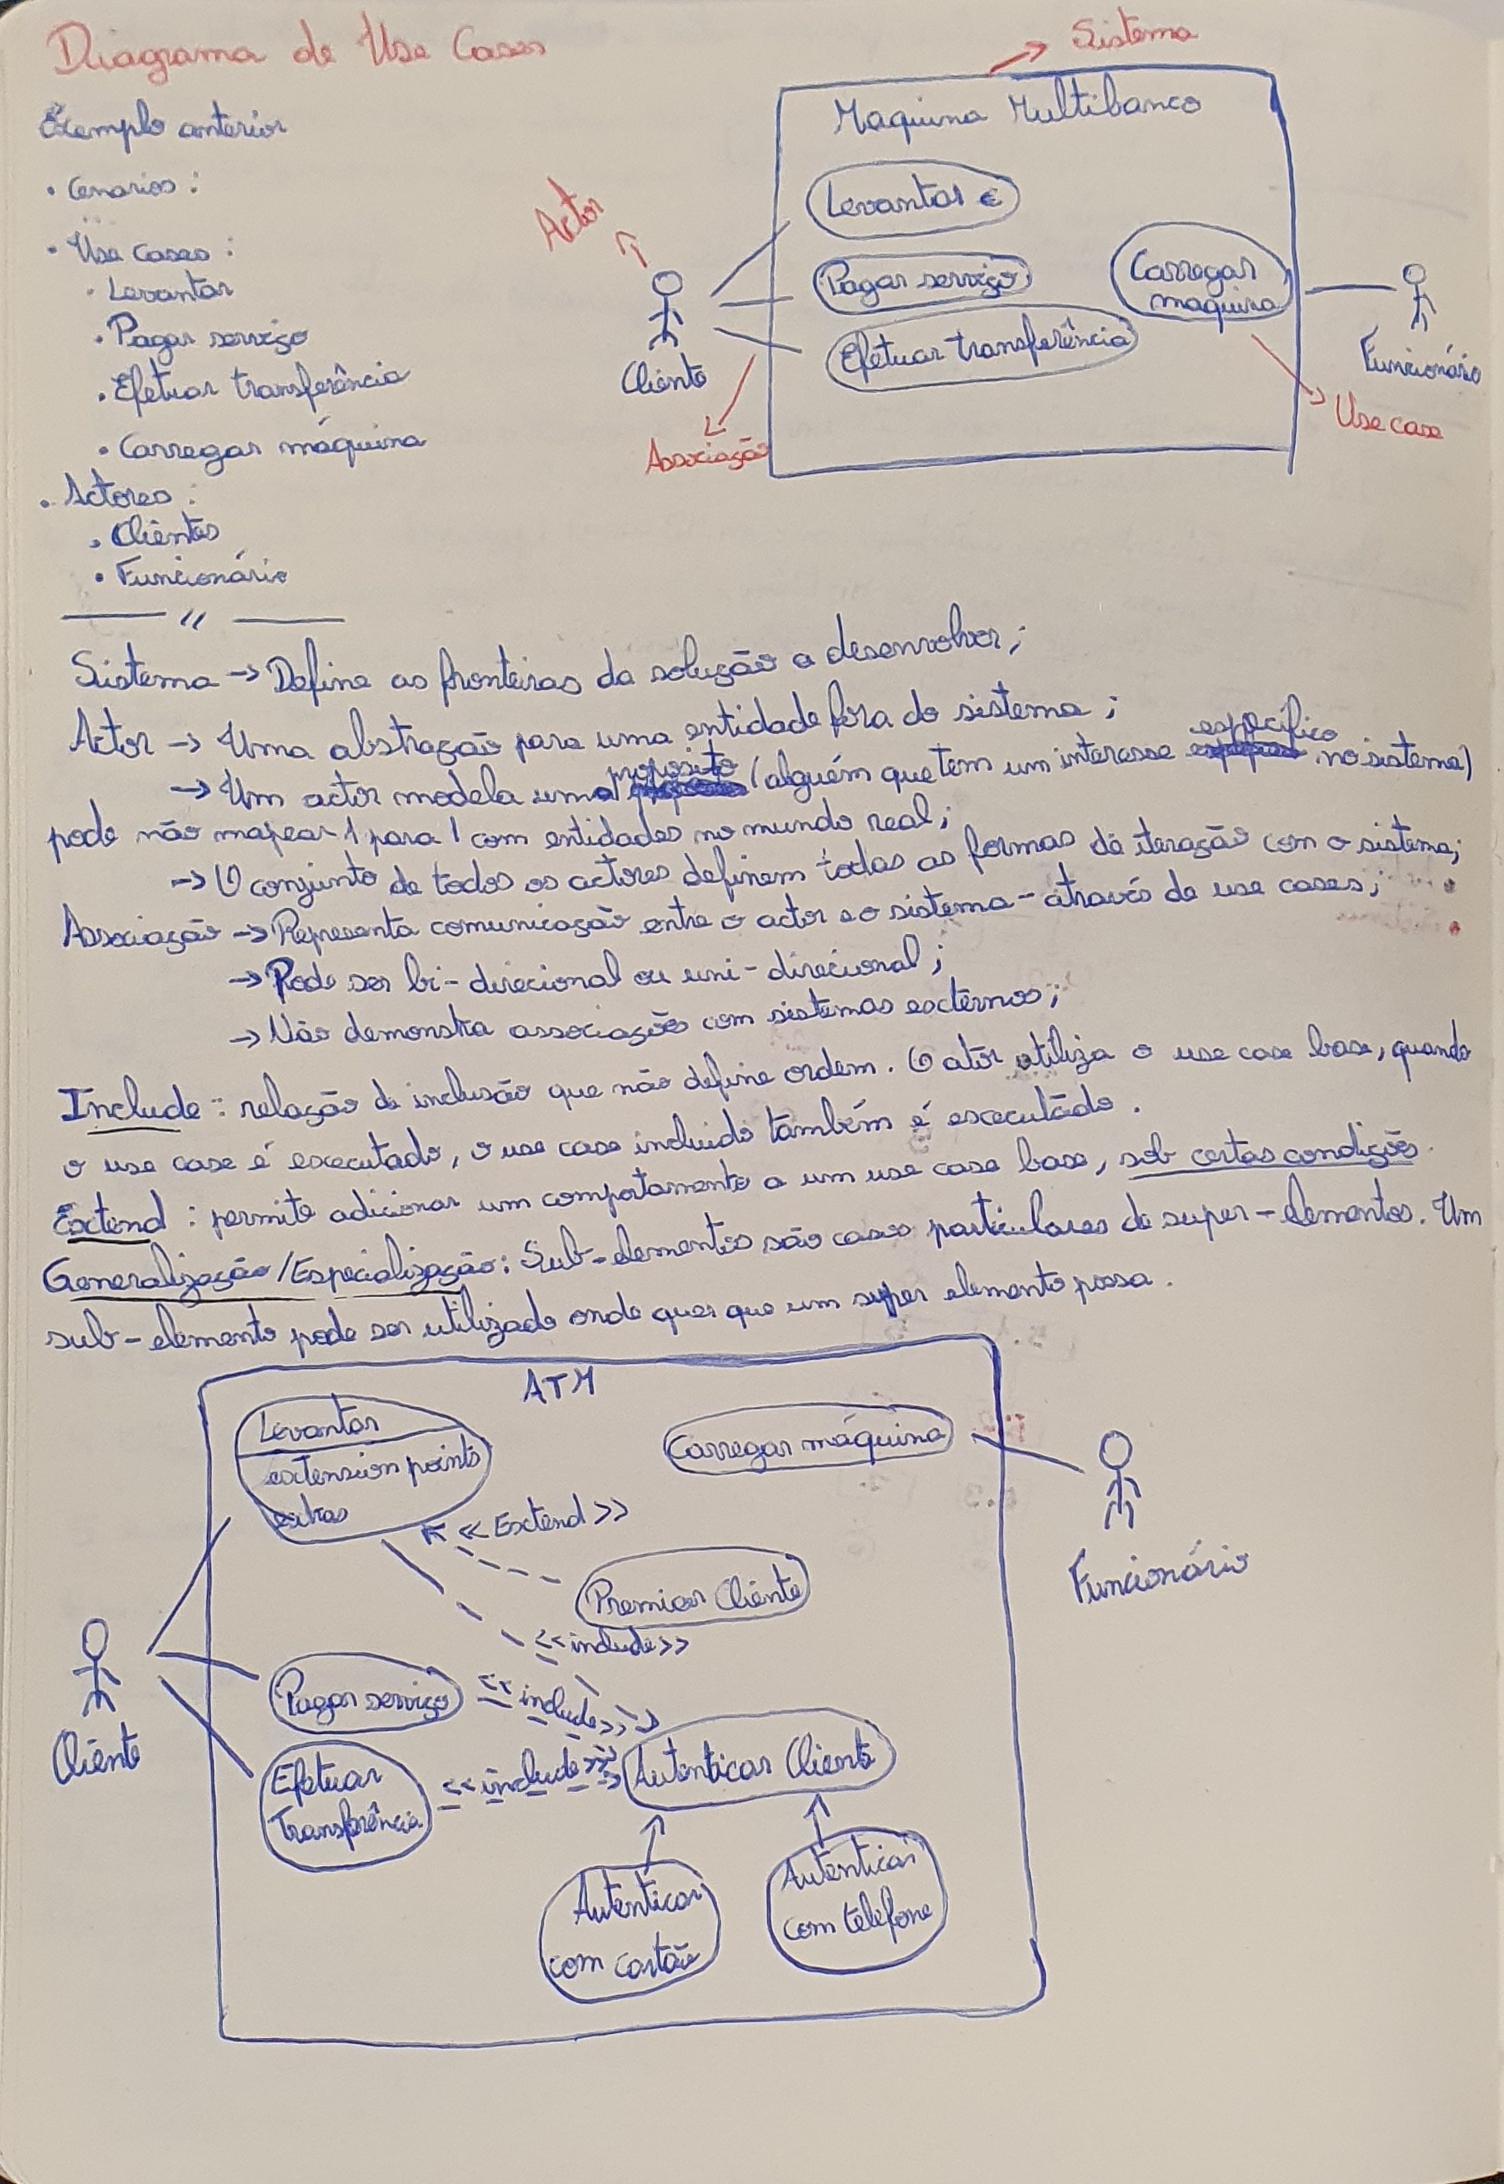 Diagrama de Use Cases
Exemplo anterior
• Cenarios :
• Use cases :
• Levantar
• Pagar serviço
• Efetuar transferência
• Carregar máquina
• Actores :
• Clientes
• Funcionário
Sistema
Maquina Multibanco
Levantar €
Pagar serviço
Efetuar transferência
Carregar
maquina
Actor
Cliente
Associação
Funcionário
Use case
Sistema → Define as fronteiras da solução a desenvolver;
Actor → Uma abstração para uma entidade fora do sistema ;
→ Um actor modela um propósito (alguém que tem um interesse específico no sistema)
pode não mapear 1 para 1 com entidades no mundo real;
→ O conjunto de todos os actores definem todas as formas de iteração com o sistema;
Associação → Representa comunicação entre o actor e o sistema - através de use cases;
→ Pode ser bi-direcional ou uni-direcional ;
→ Não demonstra associações com sistemas externos;
Include : relação de inclusão que não define ordem. O ator utiliza o use case base, quando
o use case é executado, o use case incluido também é executado.
Extend : permite adicionar um comportamento a um use case base, sob certas condições.
Generalização/Especialização: Sub-elementos são casos particulares de super-elementos. Um
sub-elemento pode ser utilizado onde quer que um super elemento possa.
ATM
Levantar
extension points
extras
Carregar máquina
<< Extend >>
Premiar Cliente
<<include>>
Funcionário
Cliente
Pagar serviço
<<include>>
Efetuar
Transferência
<<include>>
Autenticar Cliente
Autenticar
com cartão
Autenticar
com telefone